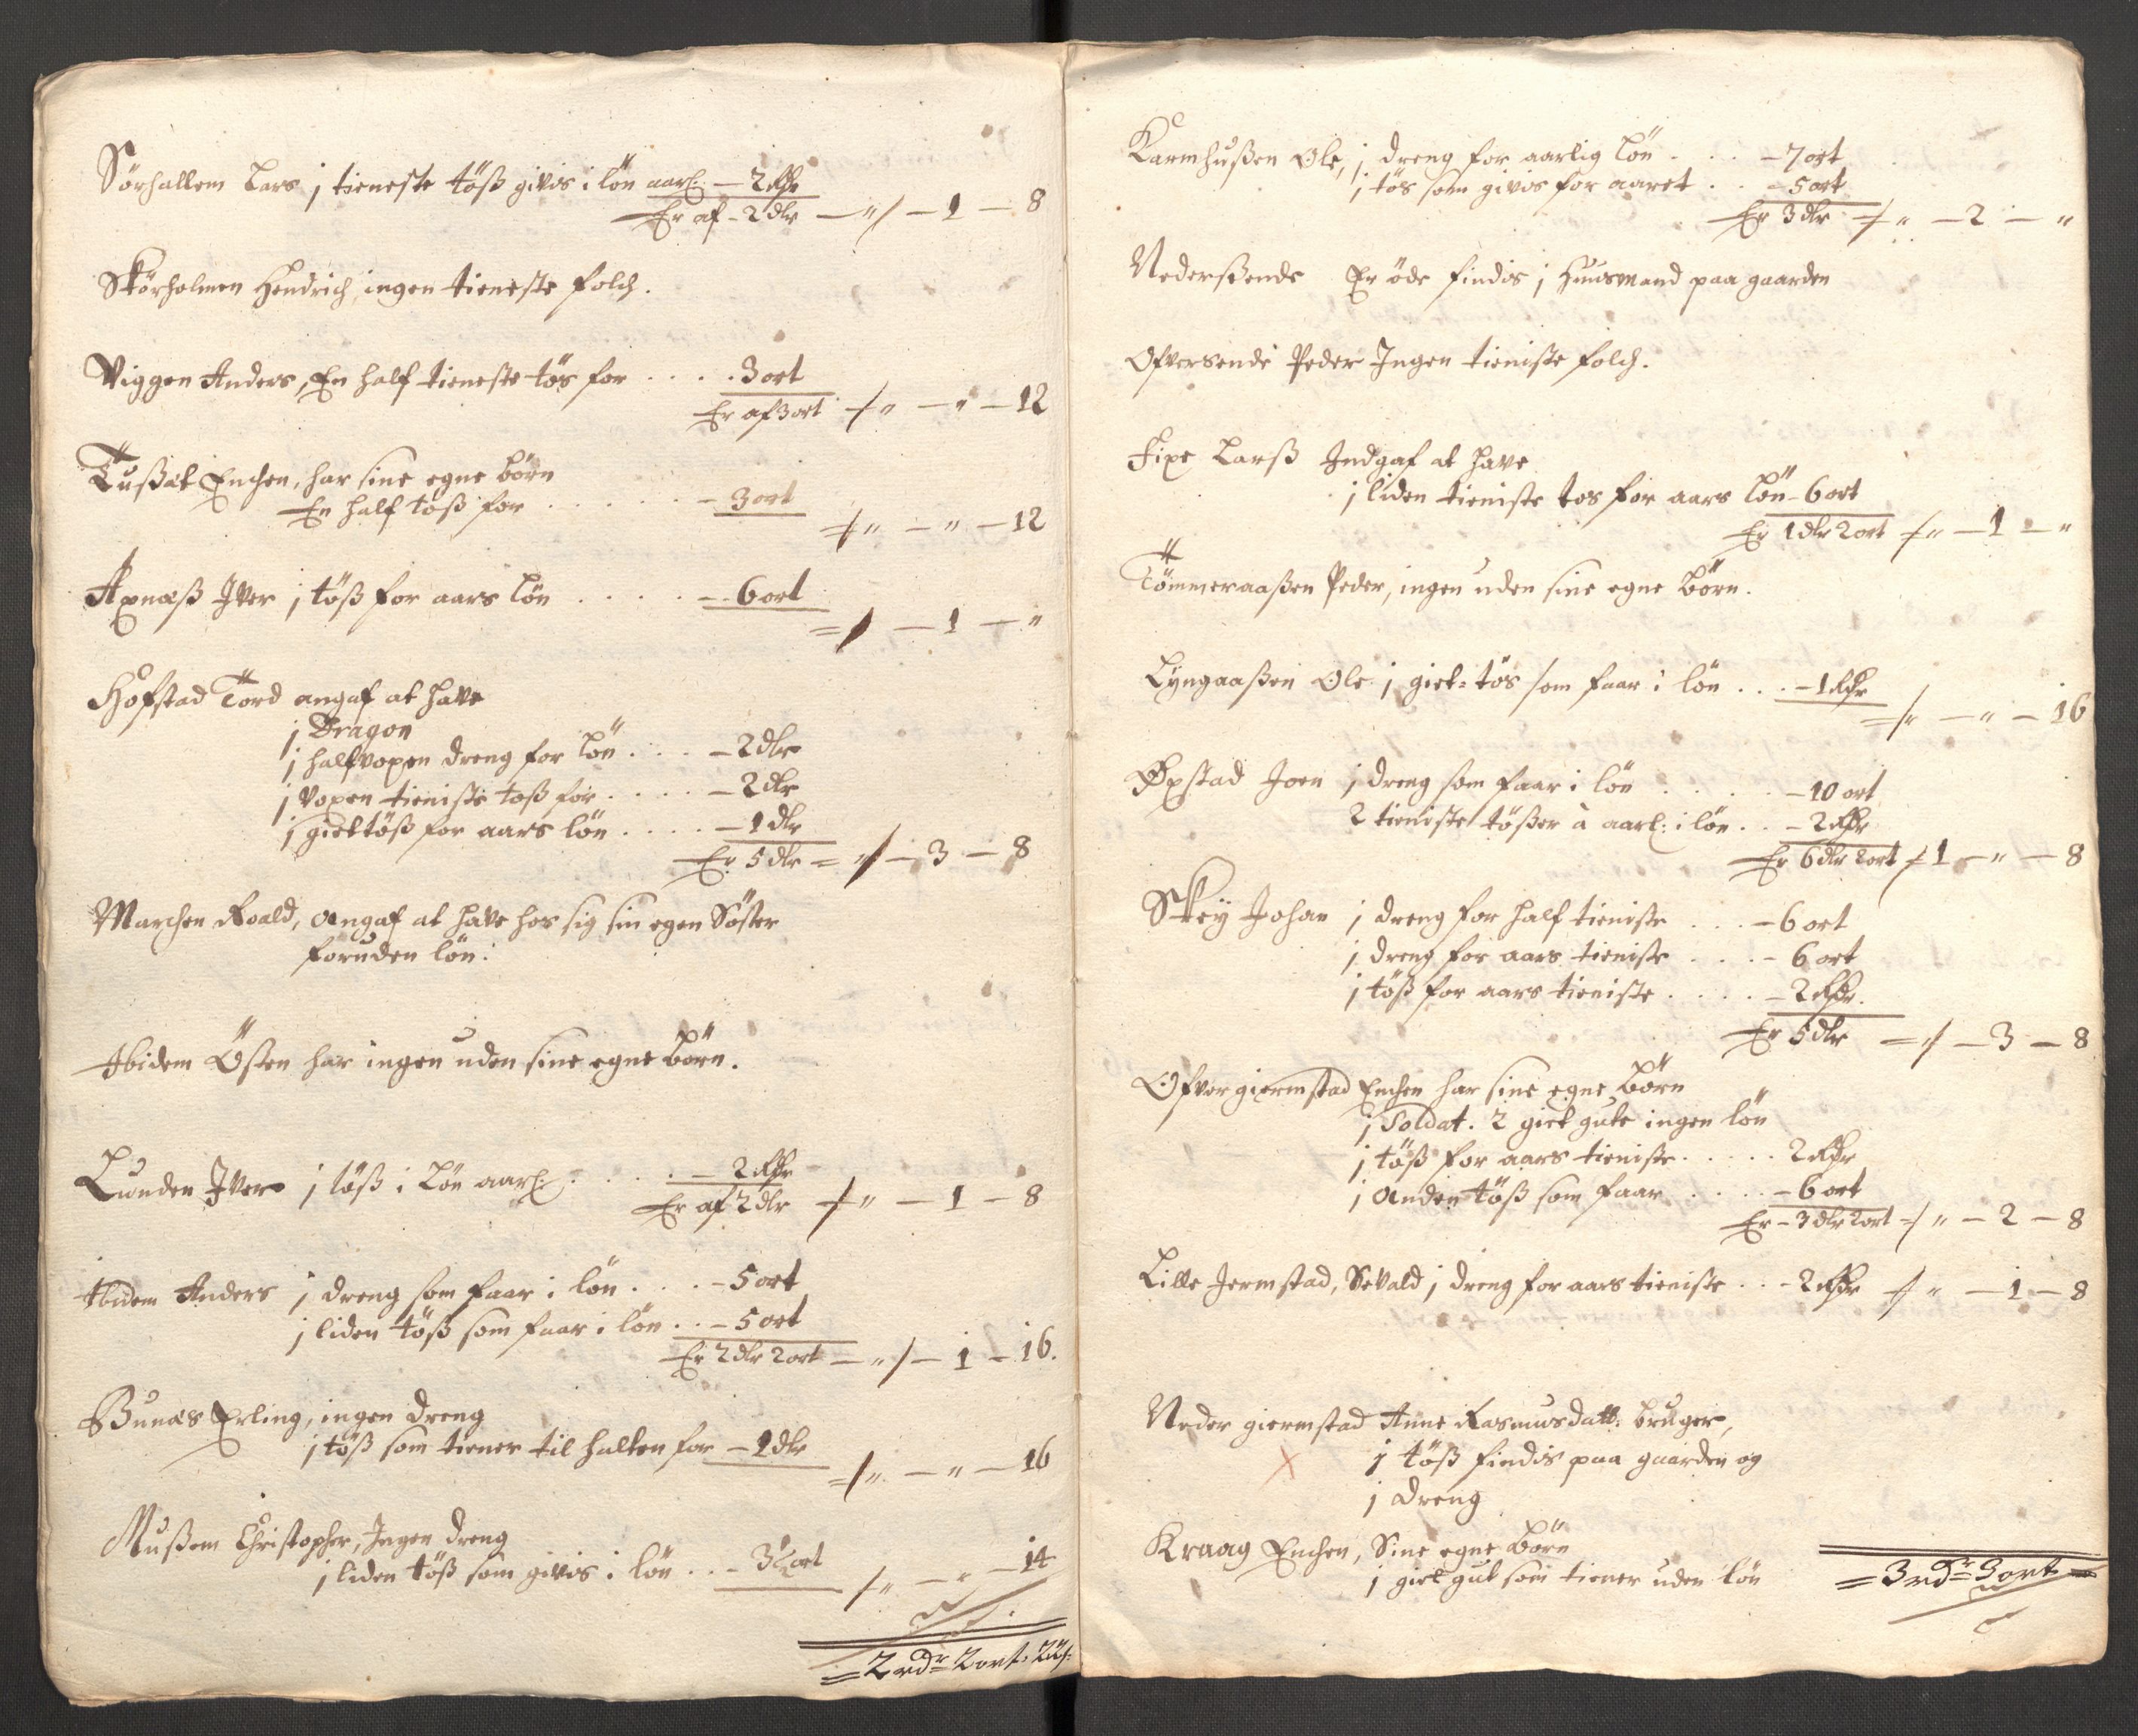 Sörhallem Lars j tieneste töß givis i lön aarl: — 2 Rdr
Er af - 2 dlr — " / — 1 — 8
Skörholmen Hendrich, ingen tieneste folch.
Viggen Anders, En half tieneste tös for . . . . 3 ort
Er af 3 ort / " — " — 12
Tußæt Enchen, har sine egne börn
En half töß for . . . . . . — 3 ort
/ " — " — 12
Axnæß Iver j töß for aars lön . . . . — 6 ort
/ — 1 — "
Hofstad Tord angaf at have
j Dragon
j halfvoxen dreng for lön . . . — 2 dlr
j voxen tieniste töß for . . . . — 2 dlr
j giettöß for aars lön . . . . — 1 dlr
Er 5 dlr = " / — 3 — 8
Marchen Roald, angaf at have hos sig sin egen Söster
foruden lön.
Ibidem Östen har ingen uden sine egne börn.
Lunden Iver j töß i lön aarl: . . . . — 2 Rdr
Er af 2 dlr / " — 1 — 8
Ibidem Anders j dreng som faar i lön . . . — 5 ort
j liden töß som faar i lön . . — 5 ort
Er 2 dlr 2 ort — " / — 1 — 16.
Bunæs Erling, ingen dreng
j töß som tiener til halten for — 1 dlr
/ " — " — 16
Mußem Christopher, Ingen dreng
j liden töß som givis i lön . . — 3½ ort
/ " — " — 14
= 2 rdr 2 ort. 22 s.
Karmhußen Ole, j dreng for aarlig lön . . . — 7 ort
j tös som givis for aaret . . — 5 ort
Er 3 dlr / " — 2 — "
Nederßende Er öde findis j Huusmand paa gaarden
Ofversende Peder Ingen tieniste folch.
Fixe Larß Indgaf at have
j liden tieniste tos for aars lön — 6 ort
Er 1 dlr 2 ort / " — 1 — "
Tömmeraaßen Peder, ingen uden sine egne börn.
Lyngaaßen Ole j giet-tös som faar i lön . . . — 1 Rdr
/ " — " — 16
Öxstad Joen j dreng som faar i lön . . . . . — 10 ort
2 tieniste tößer à aarl: i lön . . — 2 Rdr
Er 6 dlr 2 ort / 1 — " — 8
Skey Johan j dreng for half tieniste . . . — 6 ort
j dreng for aars tieniste . . . — 6 ort
j töß for aars tieniste . . . . — 2 Rdr.
Er 5 dlr = / — 3 — 8
Ofver giermstad Enchen har sine egne börn
j Soldat. 2 giet gute ingen lön
j töß for aars tieniste . . . . . 2 Rdr
j anden töß som faar . . . . — 6 ort
Er — 3 dlr 2 ort / " — 2 — 8
Lille Jermstad, Sevald j dreng for aars tieniste . . — 2 Rdr / " — 1 — 8
Neder giermstad Anne Rasmusdatt: bruger,
j töß findis paa gaarden og
j dreng
Kraag Enchen, Sine egne börn
j giet gut som tiener uden lön
= 3 rdr 3 ort =